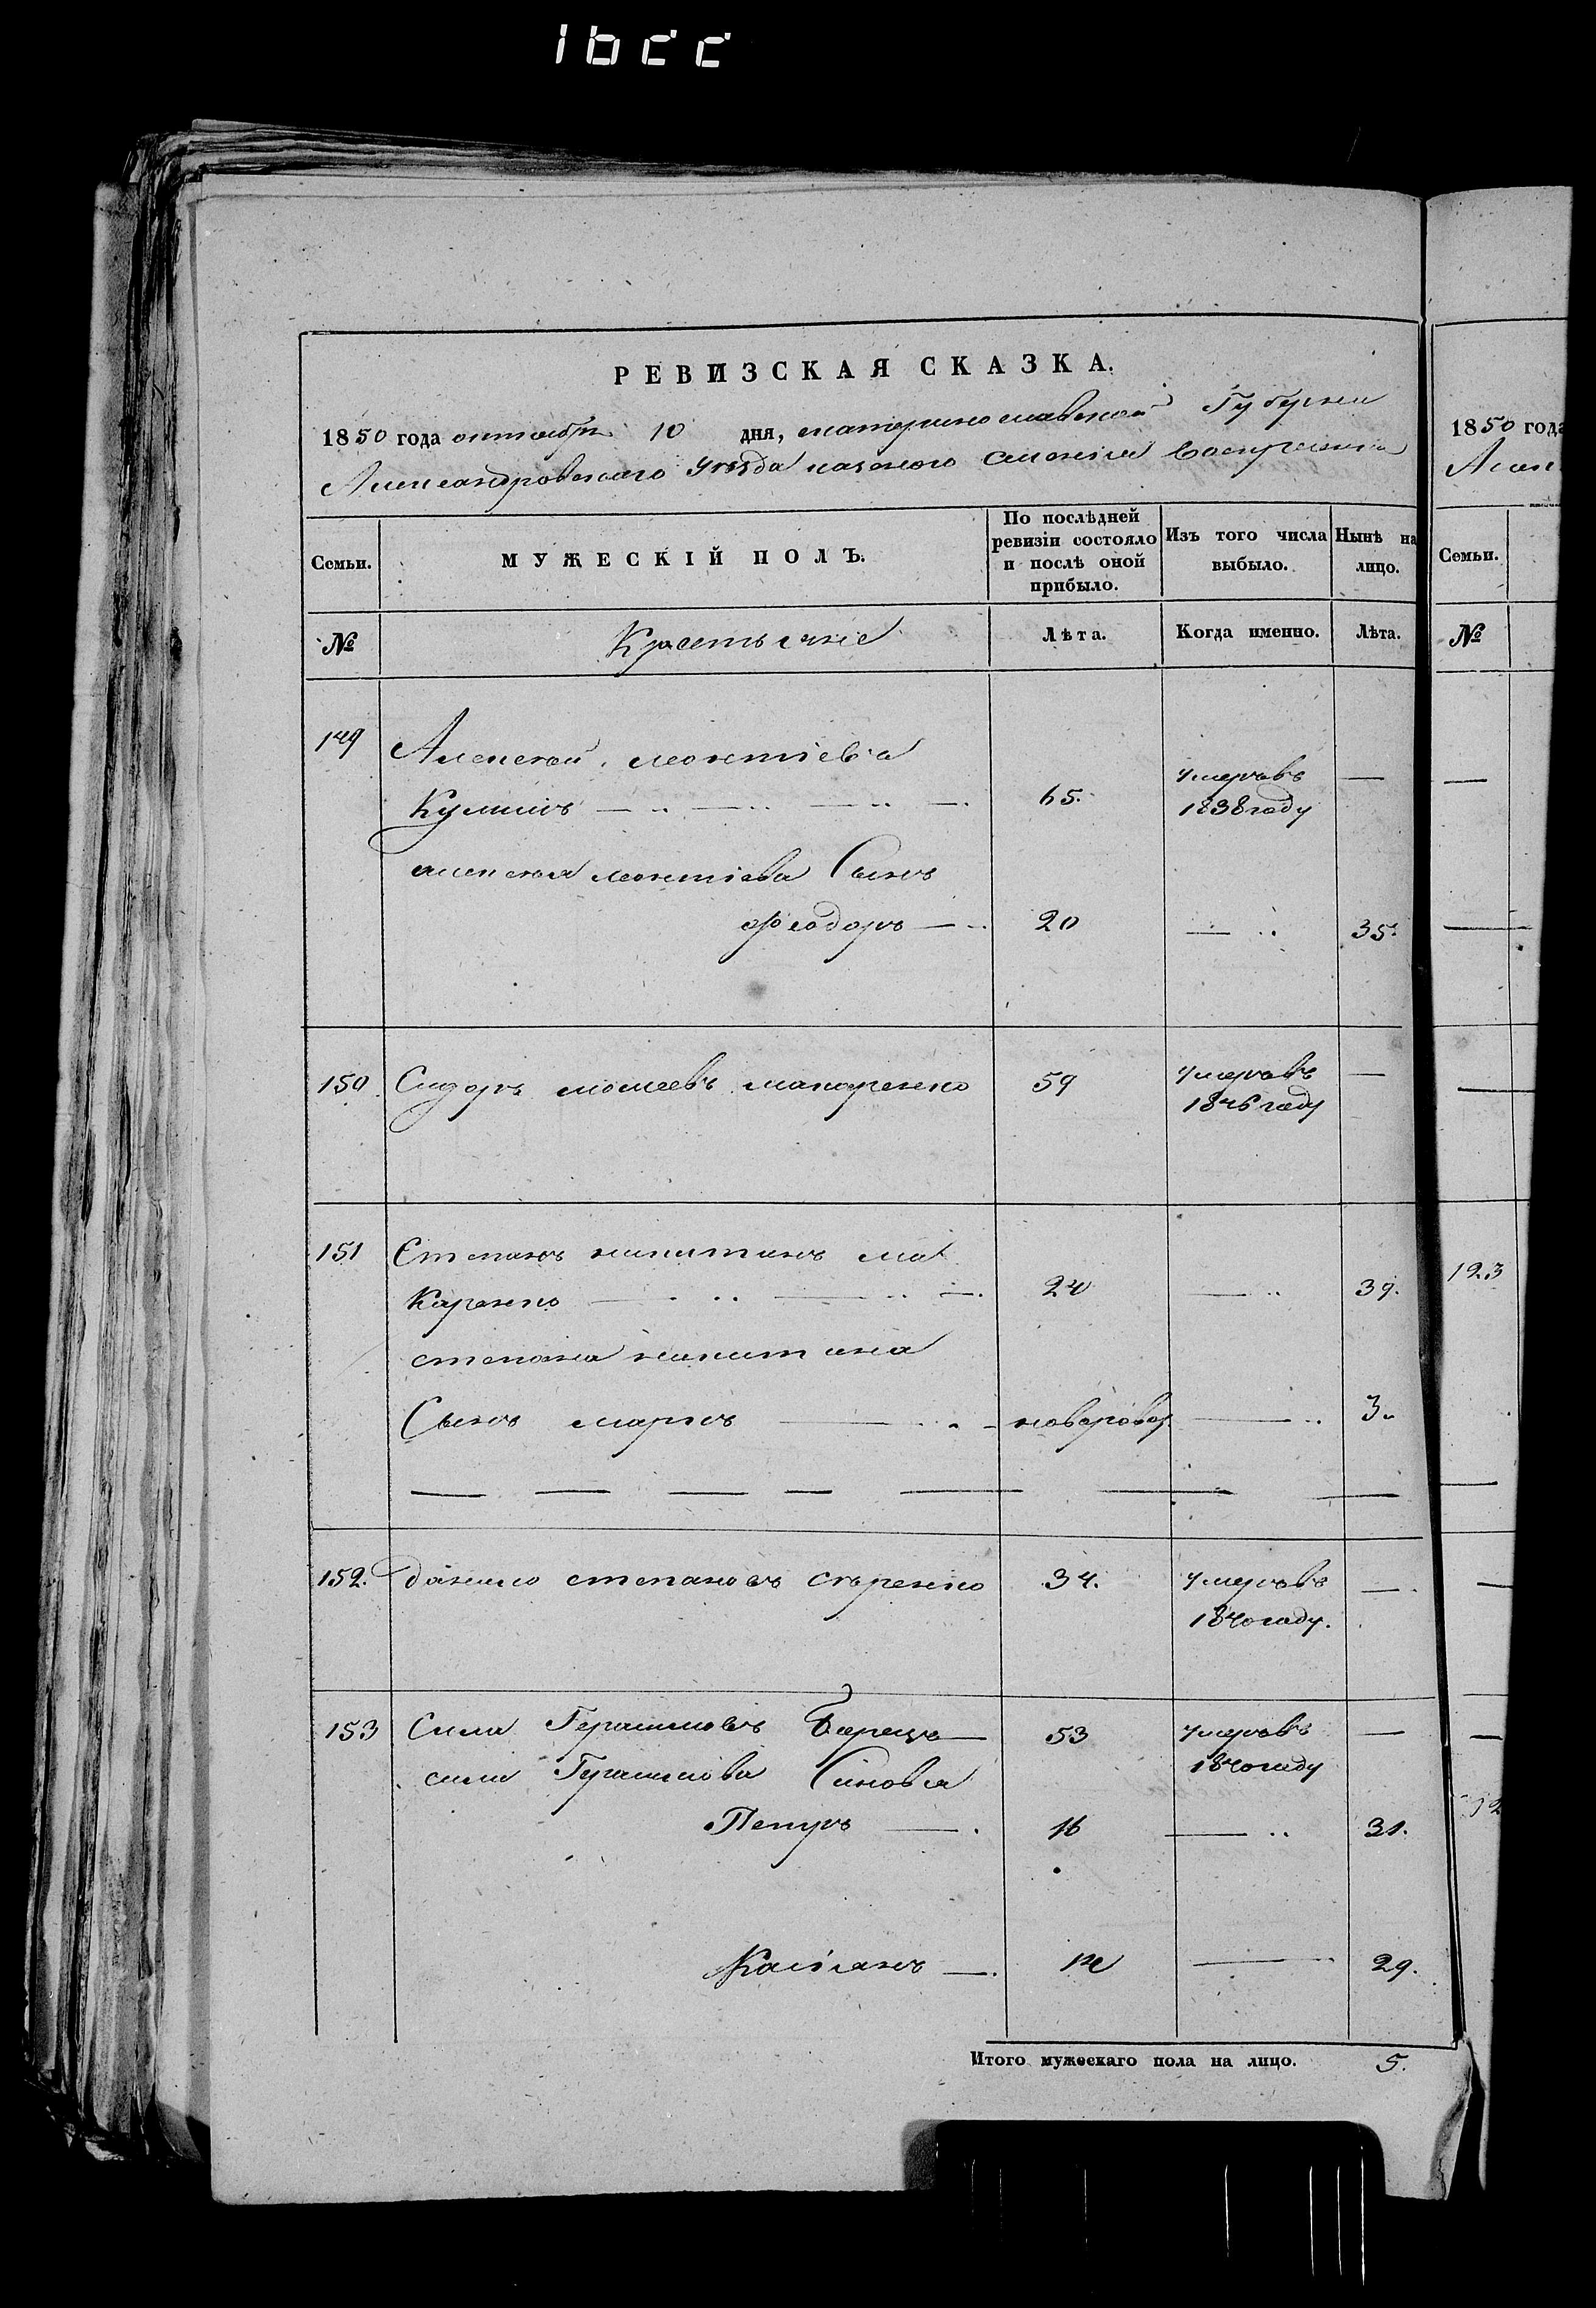 РЕВИЗСКАЯ СКАЗКА.
1850 года октября 10 дня, екатеринославской Губерніи
Александровского уезда казеного селенія Воскресенки
Семьи. МУЖЕСКІЙ ПОЛЪ. По послѣдней ревизіи состояло и послѣ оной прибыло. Изъ того числа выбыло. Нынѣ на лицо.
№ Крестьяне Лѣта. Когда именно. Лѣта.
149 Алексей леонтіева
Кулишъ 65. умеръ въ 1838 году —
алексея леонтіева Сынъ
феодоръ 20 — 35.
150 Сидоръ мосеевъ макаренко 59 умеръ въ 1846 году —
151 Степанъ никитинъ ма
каренко 24 — 39.
степана никитина
Сынъ марко новорож. — 3.
152. данило степановъ 34. умеръ въ 1840 году. —
153 Сила Герасимовъ 53 умеръ въ 1840 году —
силы Герасимова Синовья
Петръ 16 — 31.
Касіянъ 14 — 29.
Итого мужескаго пола на лицо. 5.
1850 года
Алек
Семьи.
№
123